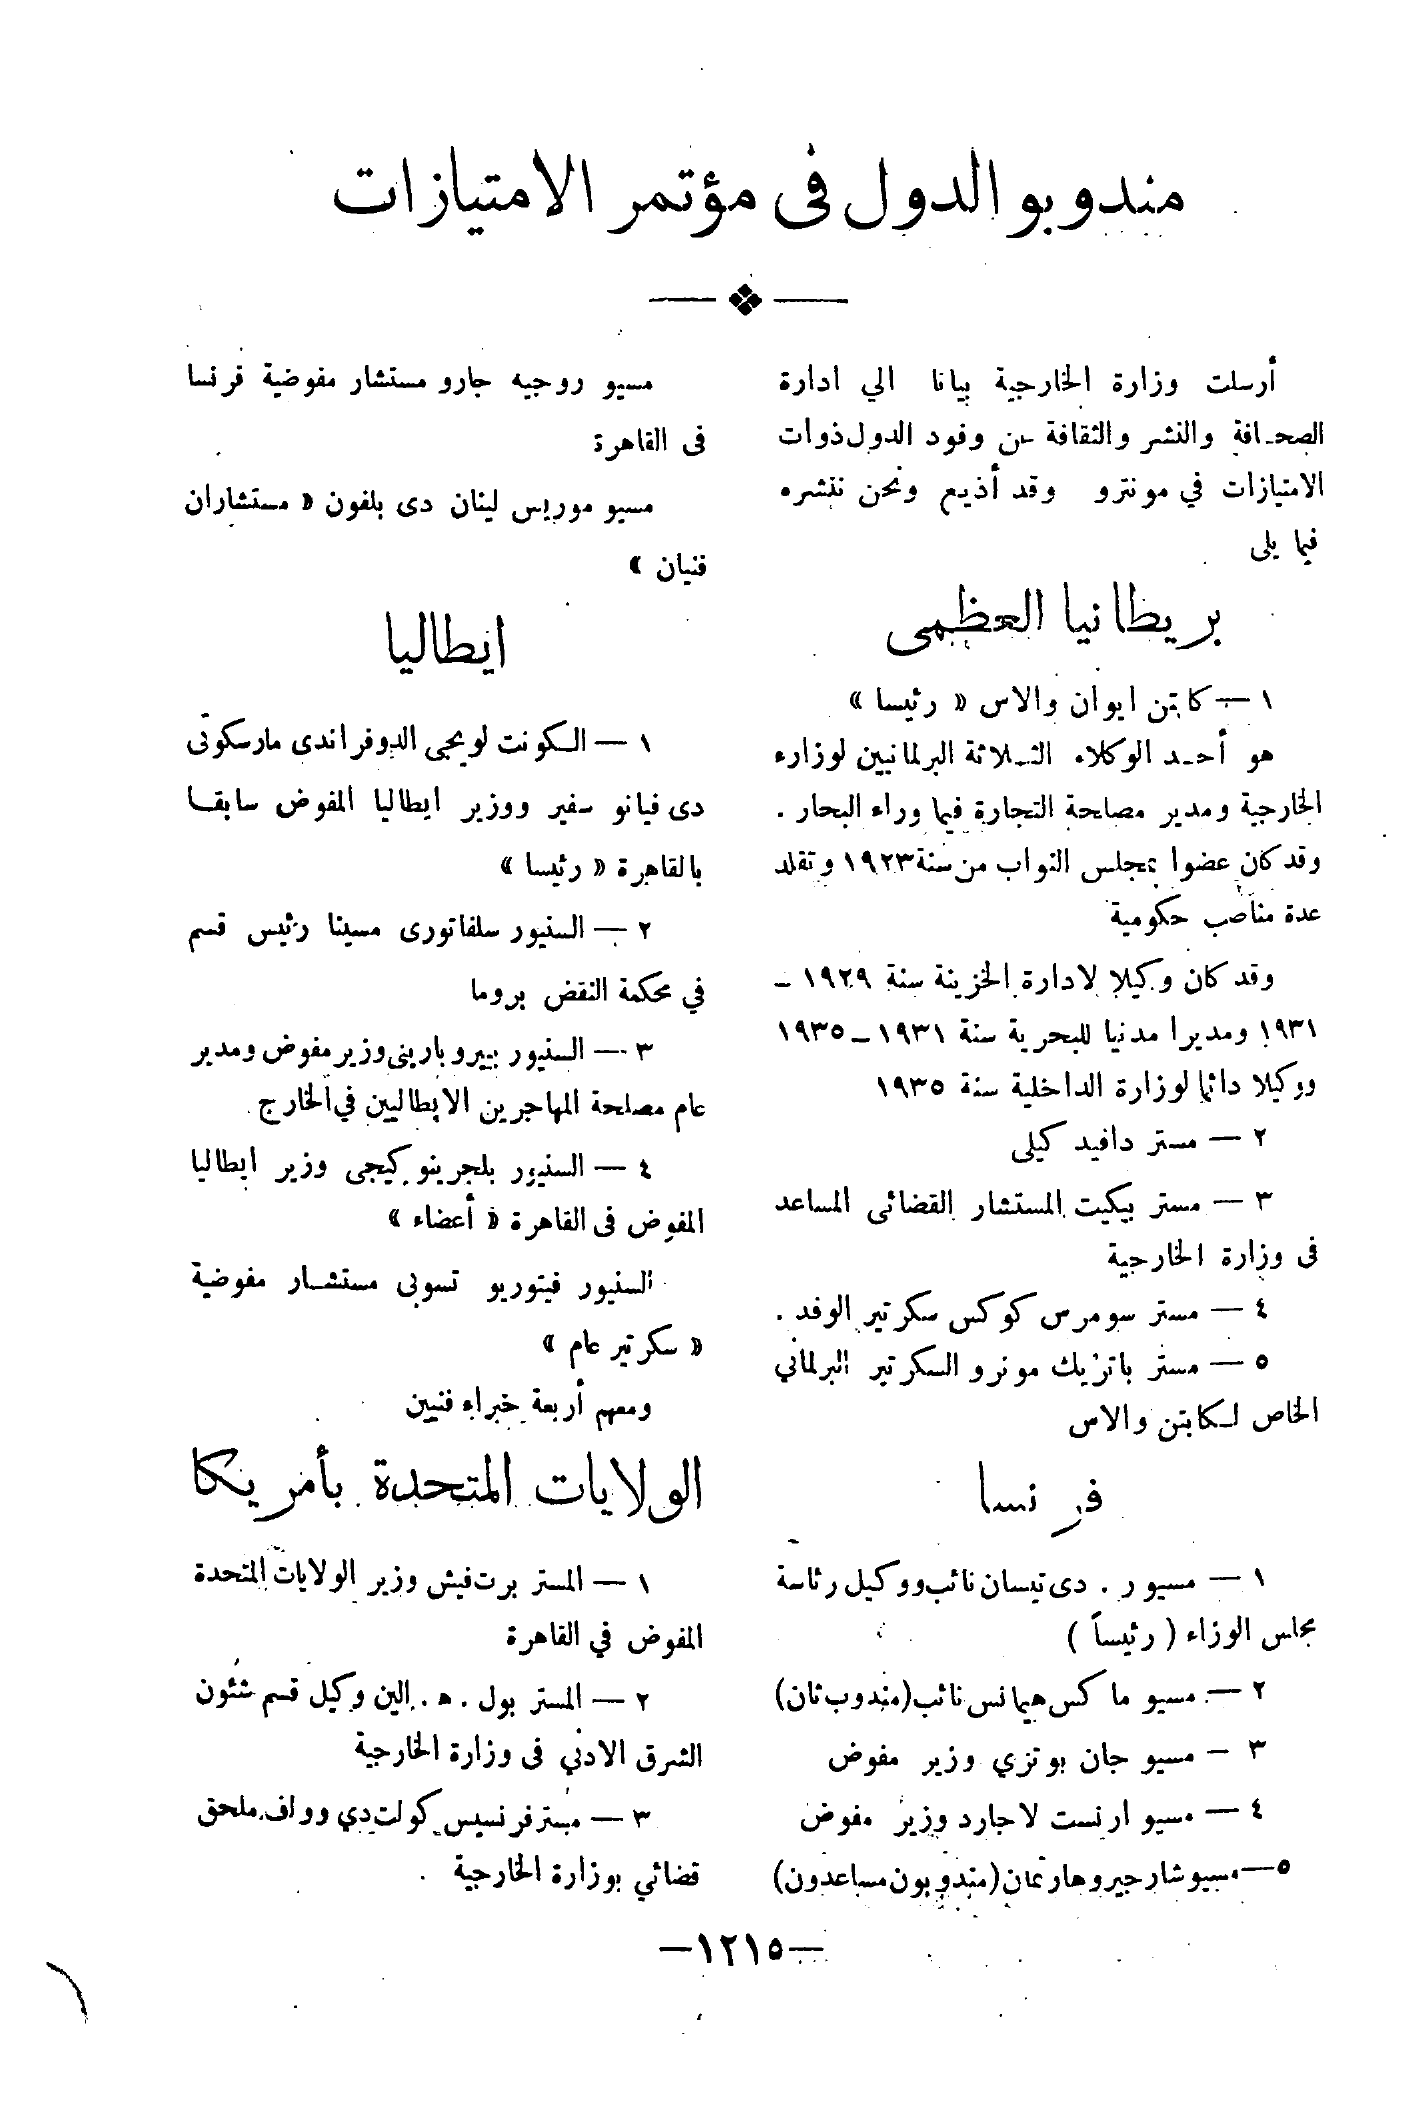 مندوبو الدول فى مؤتمر الامتيازات
أرسلت وزارة الخارجية بيانا الي ادارة
الصحافة والنشر والثقافة عن وفود الدول ذوات
الامتيازات في مونترو وقد أذيع ونحن ننشره
فيما يلى
بريطانيا العظمى
١ — كابتن ايوان والاس « رئيسا »
هو أحد الوكلاء الثلاثة البرلمانيين لوزارة
الخارجية ومدير مصلحة التجارة فيما وراء البحار .
وقد كان عضوا بمجلس النواب من سنة ١٩٢٣ وتقلد
عدة مناصب حكومية
وقد كان وكيلا لادارة الخزينة سنة ١٩٢٩ –
١٩٣١ ومديرا مدنيا للبحرية سنة ١٩٣١ – ١٩٣٥
ووكيلا دائما لوزارة الداخلية سنة ١٩٣٥
٢ — مستر دافيد كيلى
٣ — مستر بيكيت المستشار القضائى المساعد
فى وزارة الخارجية
٤ — مستر سومرس كوكس سكرتير الوفد .
٥ — مستر باتريك مونرو السكرتير البرلمانى
الخاص لكابتن والاس
فرنسا
١ — مسيو ر . دى تيسان نائب ووكيل رئاسة
مجلس الوزاء ( رئيساً )
٢ — مسيو ماكس هيمانس نائب (مندوب ثان)
٣ — مسيو جان بوتزي وزير مفوض
٤ — مسيو ارنست لاجارد وزير مفوض
٥ — مسيو شارجيرو هارتمان (مندوبون مساعدون)
مسيو روجيه جارو مستشار مفوضية فرنسا
فى القاهرة
مسيو موريس لينان دى بلفون « مستشاران
فنيان »
ايطاليا
١ — الكونت لويجى الدوفراندى مارسكوتى
دى فيانو سفير ووزير ايطاليا المفوض سابقا
بالقاهرة « رئيسا »
٢ — السنيور سلفاتورى مسينا رئيس قسم
في محكمة النقض بروما
٣ — السنيور بييرو بارينى وزير مفوض ومدير
عام مصلحة المهاجرين الايطاليين في الخارج
٤ — السنيور بلجرينو كيجى وزير ايطاليا
المفوض فى القاهرة « أعضاء »
السنيور فيتوريو تسوبى مستشار مفوضية
« سكرتير عام »
ومعهم أربعة خبراء فنيين
الولايات المتحدة بأمريكا
١ — المستر برت فيش وزير الولايات المتحدة
المفوض في القاهرة
٢ — المستر بول . ه . الين وكيل قسم شئون
الشرق الادنى فى وزارة الخارجية
٣ — مستر فرنسيس كولت دي وولف ملحق
قضائي بوزارة الخارجية .
—١٢١٥—